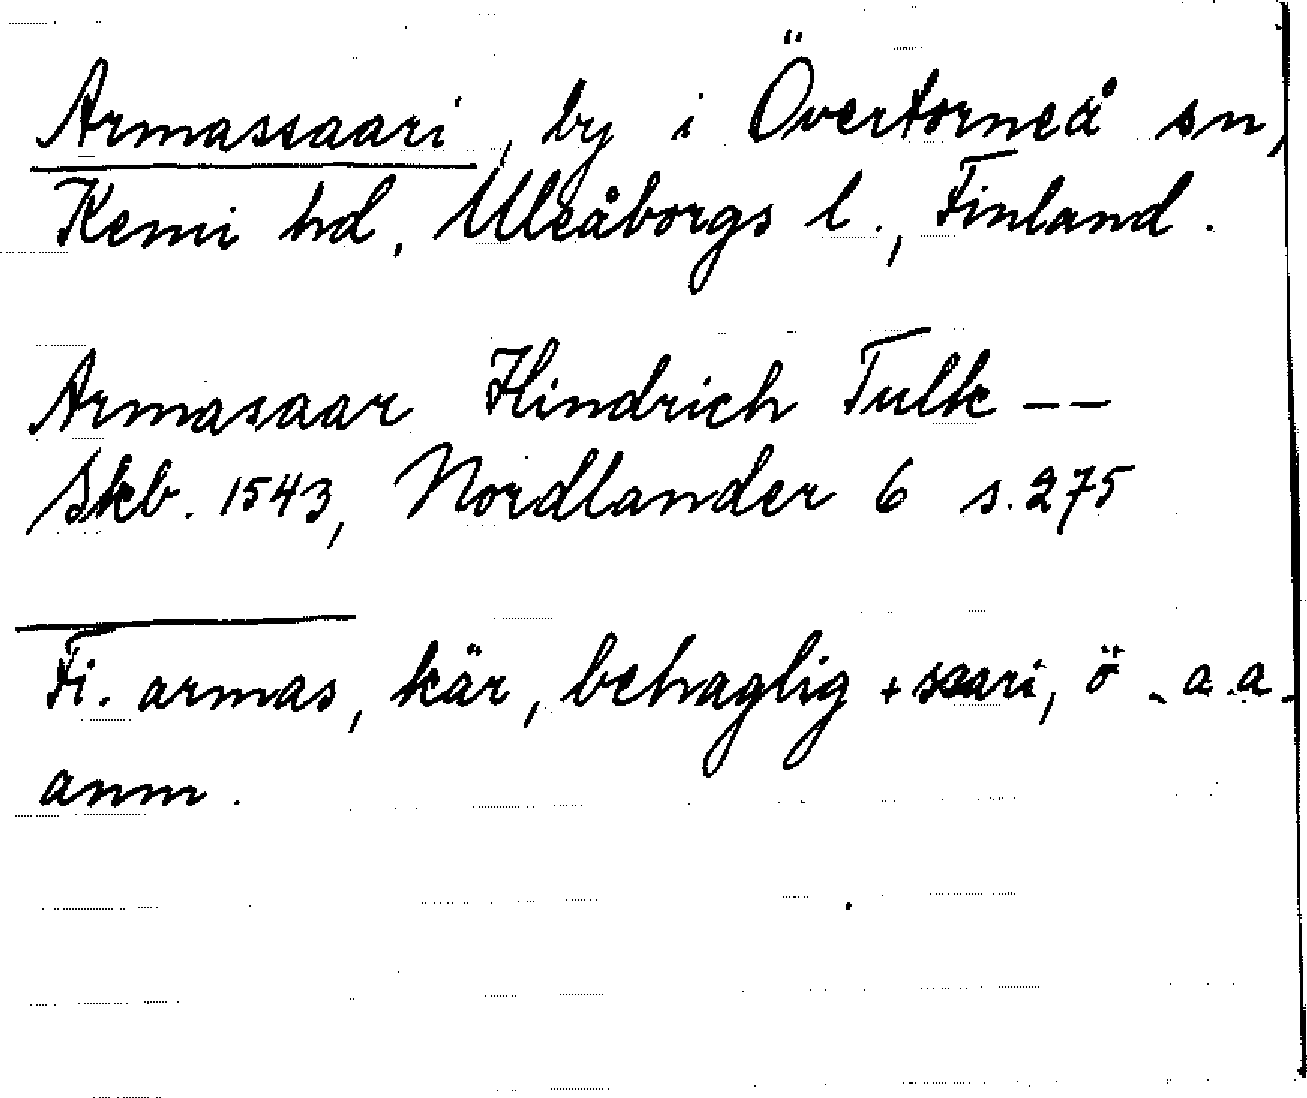 Armassaari, by i Övertorneå sn,
Kemi hd, Uleåborgs l., Finland.
Armasaar Hindrich Tulk --
Skb. 1543, Nordlander 6 s. 275
Fi. armas, kär, behaglig + saari, ö - a.a.
anm.